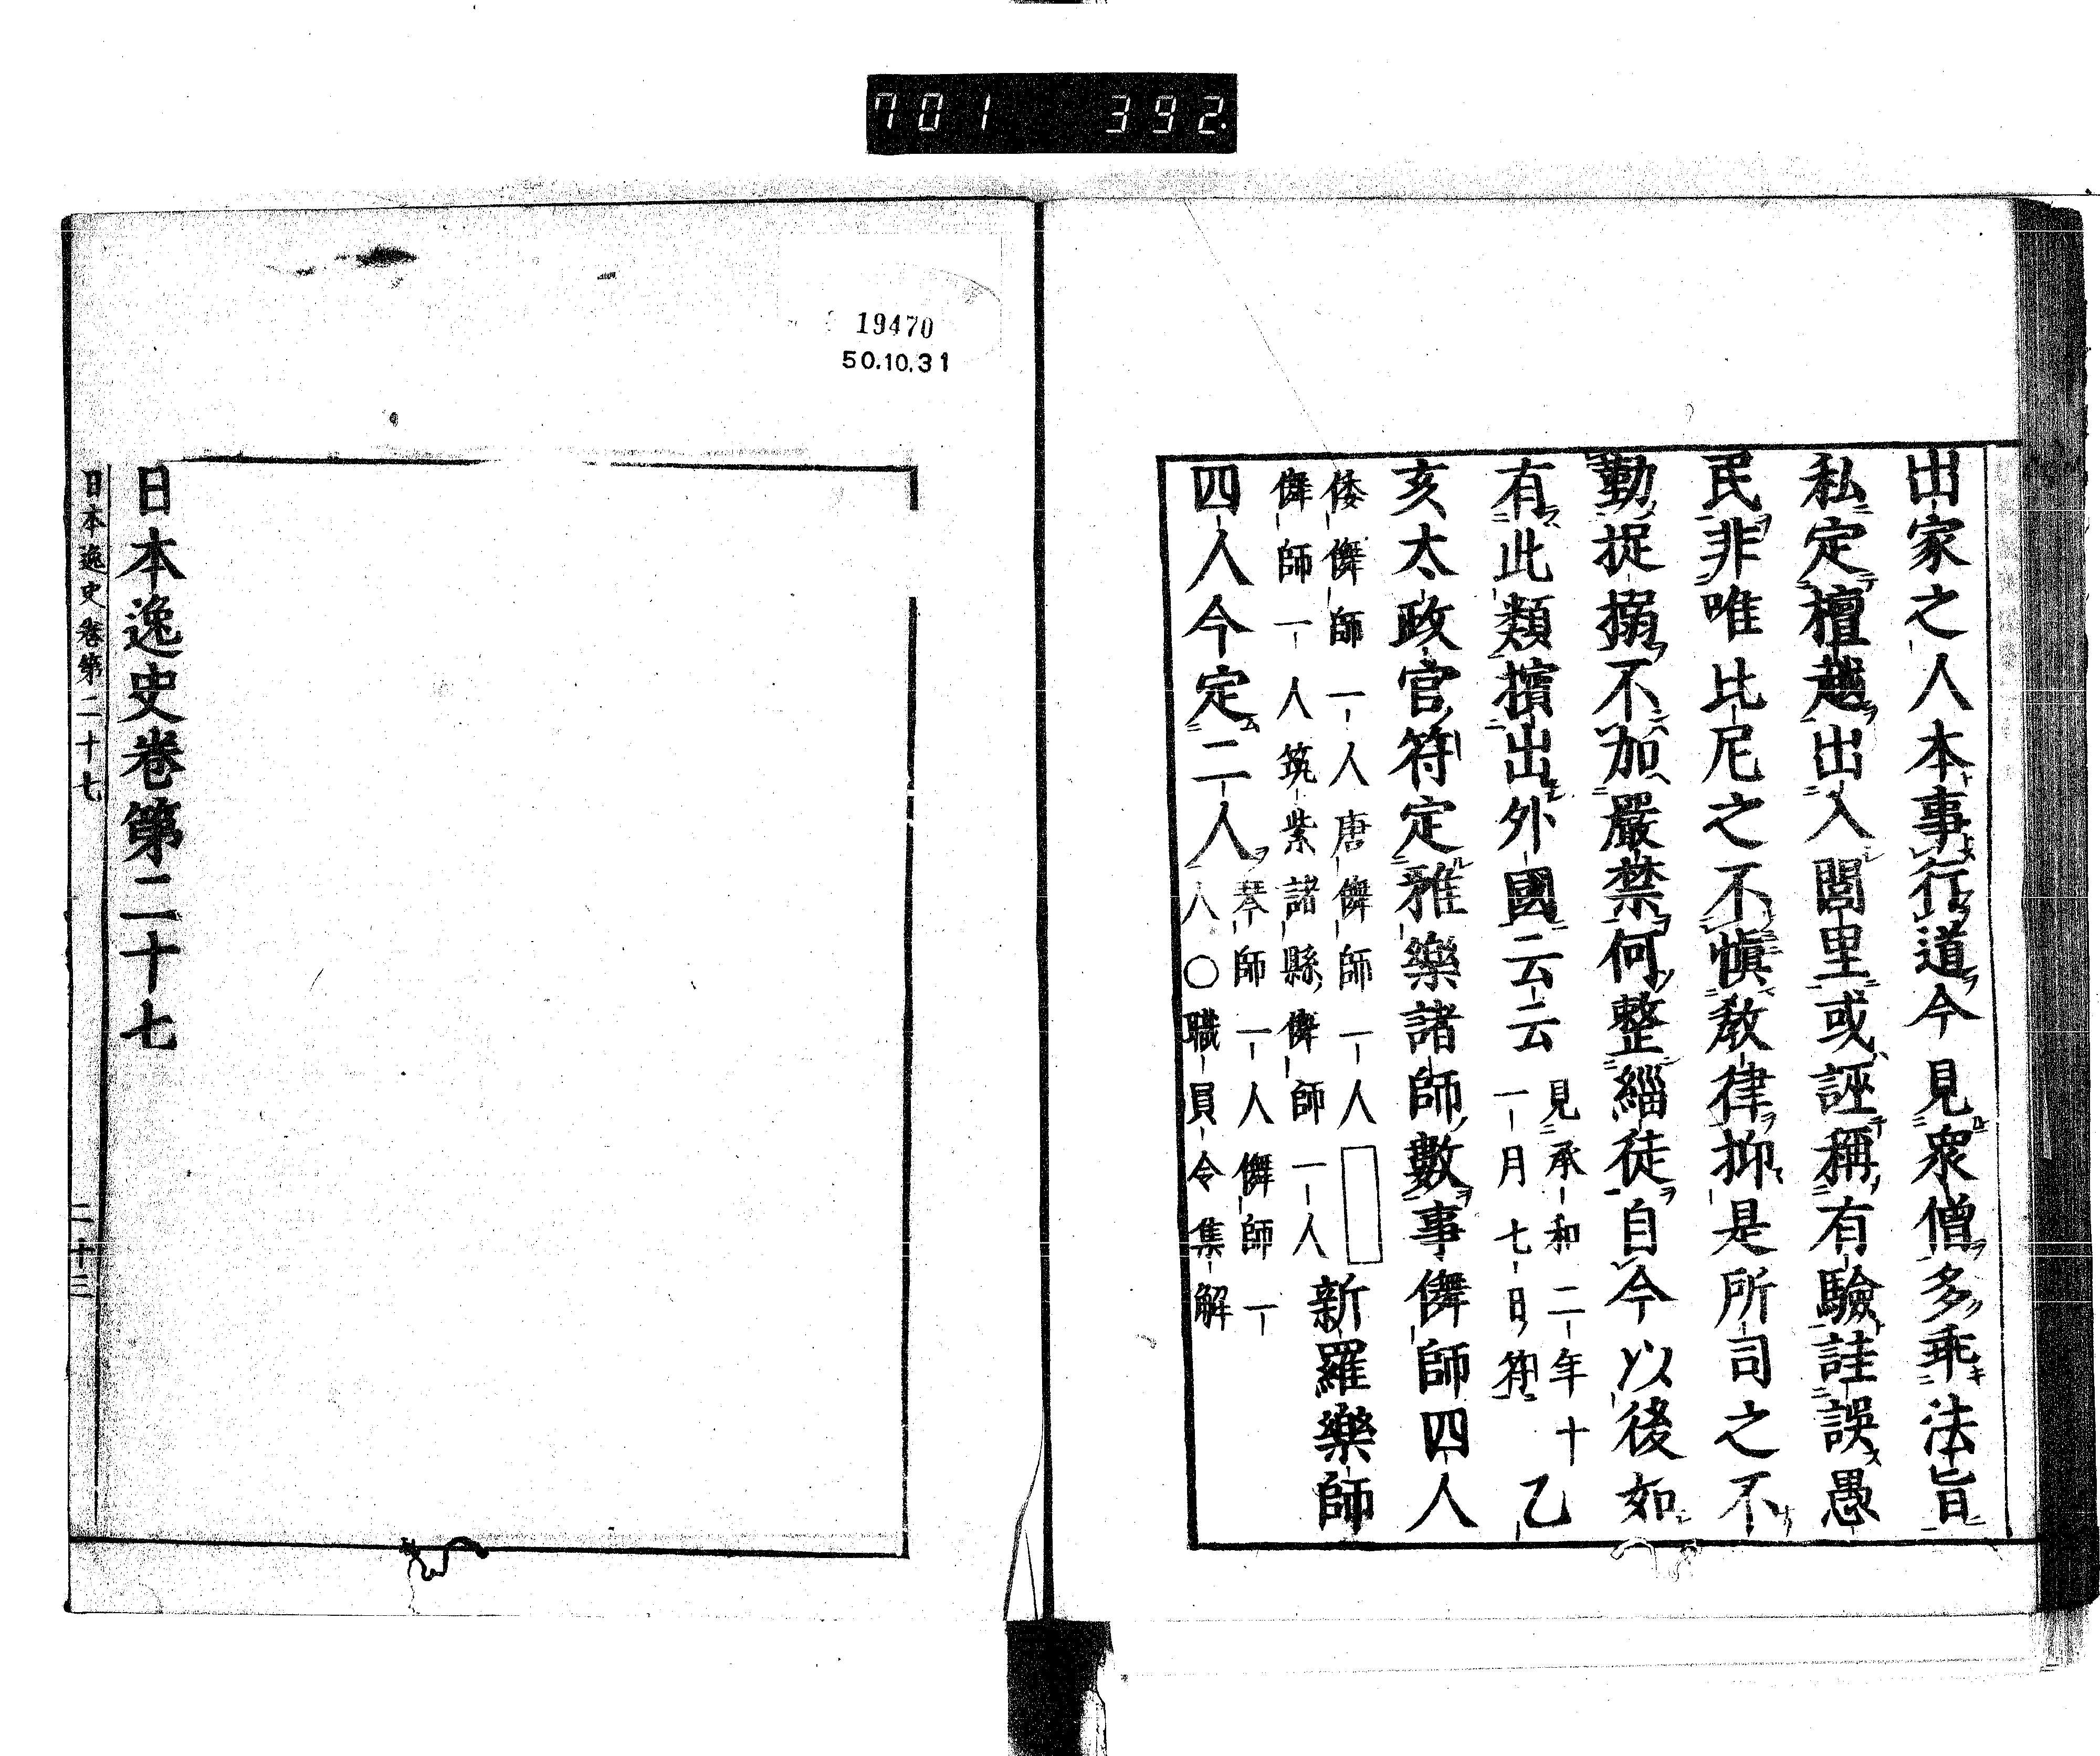 701 392
出家之人本事行道今見衆僧多乖法旨
私定檀越出入閭里或誣稱有驗詿誤愚
民非唯比尼之不愼敎律抑是所司之不
勤捉搦不加嚴禁何整緇徒自今以後如
有此類擯出外國云云
見承和二年十
一月七日符
乙
亥太政官符定雅樂諸師數事儛師四人
倭儛師一人唐儛師一人
儛師一人筑紫諸縣儛師一人
新羅樂師
四人今定二人
琴師一人儛師一
人〇職員令集解
19470
50.10.31
日本逸史卷第二十七
日本逸史卷第二十七 二十三